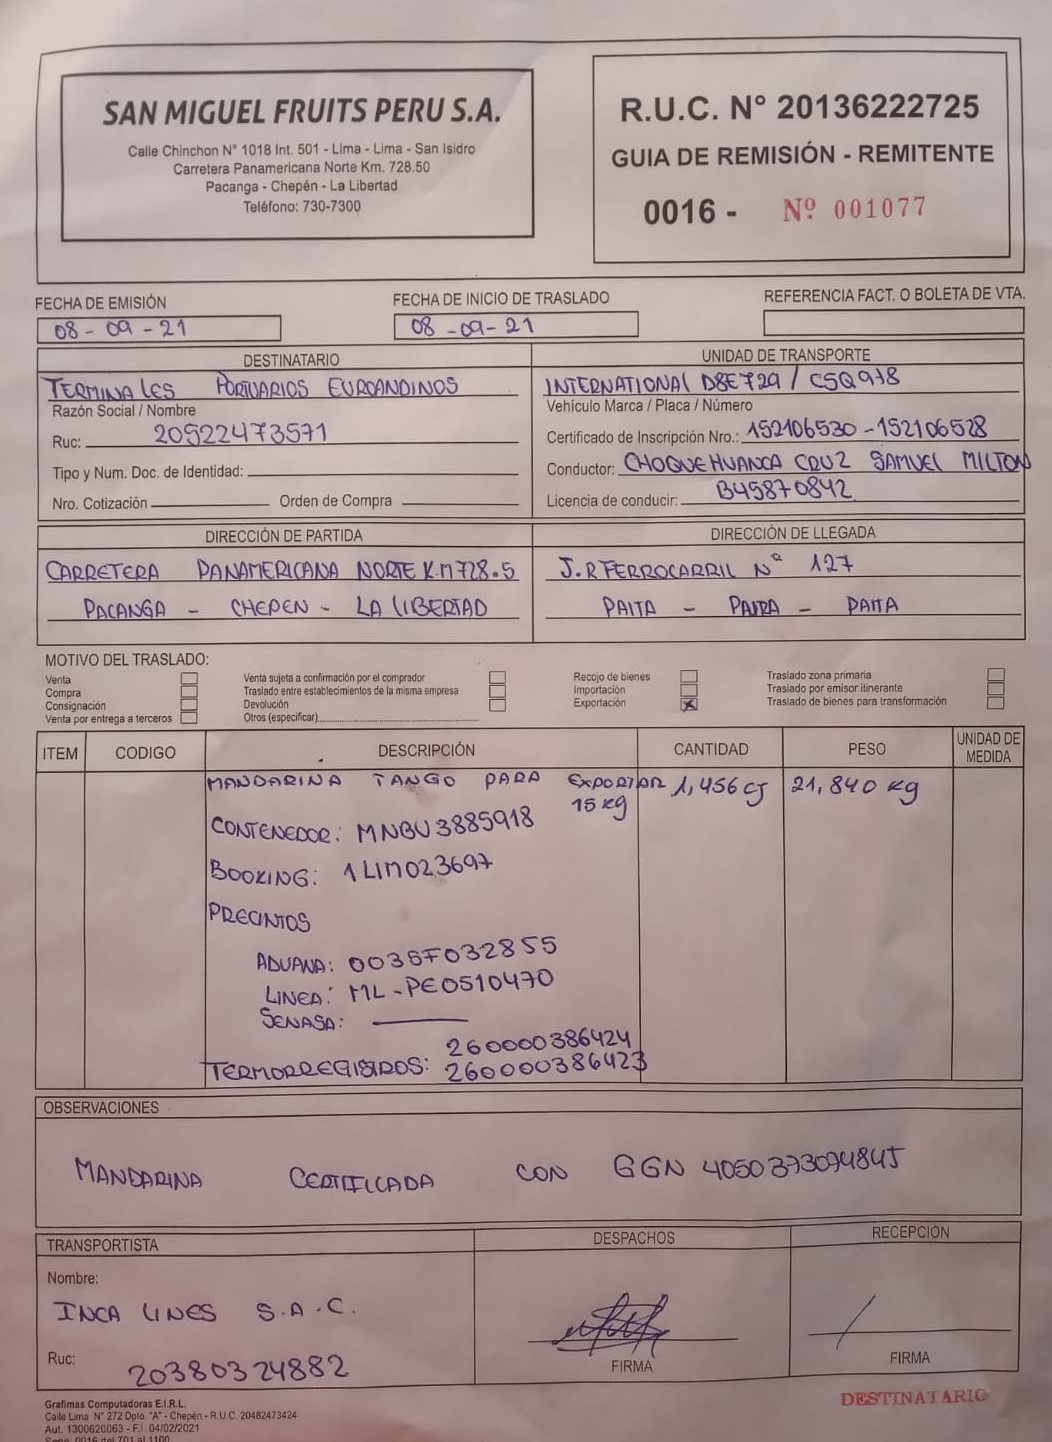 SAN MIGUEL FRUITS PERU S.A.
Calle Chinchon N° 1018 Int. 501 - Lima - Lima - San Isidro
Carretera Panamericana Norte Km. 728.50
Pacanga - Chepén - La Libertad
Teléfono: 730-7300
R.U.C. N° 20136222725
GUIA DE REMISIÓN - REMITENTE
0016 - Nº 001077
FECHA DE EMISIÓN
08-09-21
FECHA DE INICIO DE TRASLADO
08-09-21
REFERENCIA FACT. O BOLETA DE VTA.
DESTINATARIO
TERMINALES PORTUARIOS EUROANDINOS
Razón Social / Nombre
Ruc: 20522473571
Tipo y Num. Doc. de Identidad:
Nro. Cotización Orden de Compra
UNIDAD DE TRANSPORTE
INTERNATIONAL D8E729 / C5Q978
Vehículo Marca / Placa / Número
Certificado de Inscripción Nro.: 152106530-152106528
Conductor: CHOQUEHUANCA CRUZ SAMUEL MILTON
Licencia de conducir: B45870842
DIRECCIÓN DE PARTIDA
CARRETERA PANAMERICANA NORTE K.M 728.5
PACANGA - CHEPEN - LA LIBERTAD
DIRECCIÓN DE LLEGADA
J.R FERROCARRIL Nº 127
PAITA - PAITA - PAITA
MOTIVO DEL TRASLADO:
Venta
Compra
Consignación
Venta por entrega a terceros
Venta sujeta a confirmación por el comprador
Traslado entre establecimientos de la misma empresa
Devolución
Otros (especificar)
Recojo de bienes
Importación
Exportación X
Traslado zona primaria
Traslado por emisor itinerante
Traslado de bienes para transformación
ITEM CODIGO DESCRIPCIÓN CANTIDAD PESO UNIDAD DE MEDIDA
MANDARINA TANGO PARA EXPORTAR 1,456 CJ 21,840 Kg
15 Kg
CONTENEDOR: MNBU3885918
BOOKING: 1LIM023697
PRECINTOS
ADUANA: 0035F032855
LINEA: ML-PE0510470
SENASA:
260000386424
TERMORREGISTROS: 260000386423
OBSERVACIONES
MANDARINA CERTIFICADA CON GGN 4050373094845
TRANSPORTISTA
Nombre:
INCA LINES S.A.C.
Ruc: 20380324882
DESPACHOS
FIRMA
RECEPCIÓN
FIRMA
DESTINATARIO
Grafimas Computadoras E.I.R.L.
Calle Lima N° 272 Dpto. "A" - Chepén - R.U.C. 20482473424
Aut. 1300620063 - F.I. 04/02/2021
Serie: 0016 del 701 al 1100